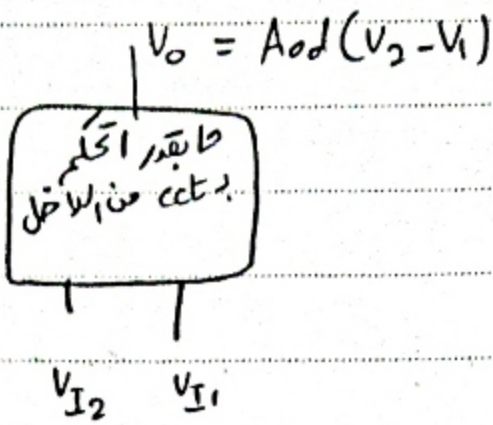 V₀ = Aod (V₂ - V₁)
ما بقدر اتحكم
بـ cct من الداخل
V_I₂ V_I₁